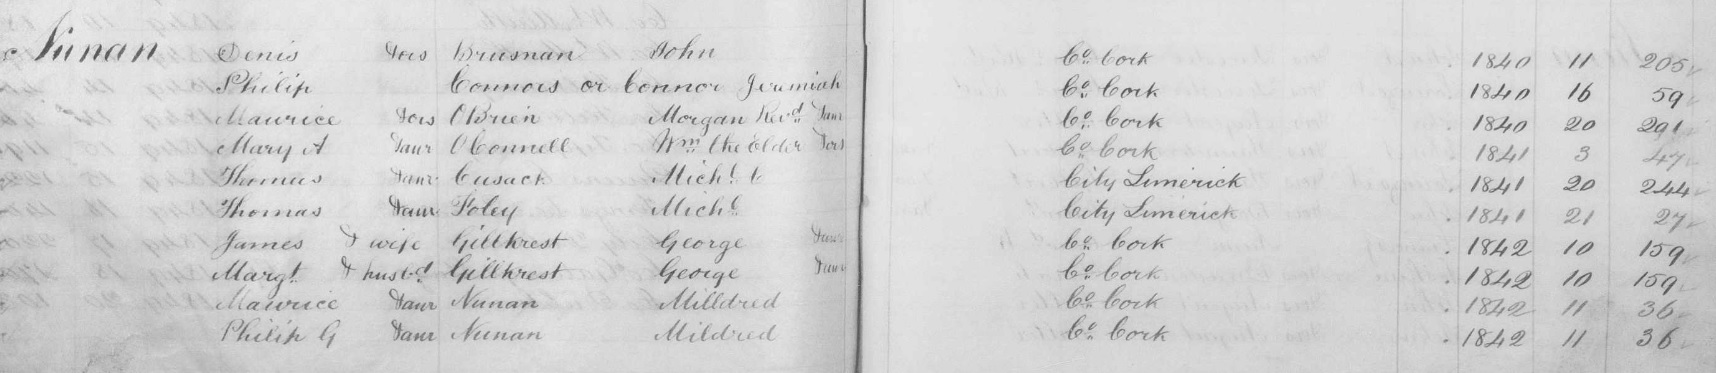 Nunan Denis & ors Brusnan John Co. Cork 1840 11 205
Philip Connors or Connor Jeremiah Co. Cork 1840 16 59
Maurice & ors OBrien Morgan Revd. & anr Co. Cork 1840 20 291
Mary A & anr OConnell Wm. the elder & ors Co. Cork 1841 3 47
Thomas & anr Cusack Michl. C City Limerick 1841 20 244
Thomas & anr Foley Michl. City Limerick 1841 21 27
James & wife Gillkrest George & anr Co. Cork 1842 10 159
Margt. & husbd. Gillkrest George & anr Co. Cork 1842 10 159
Maurice & anr Nunan Milldred Co. Cork 1842 11 36
Philip G & anr Nunan Mildred Co. Cork 1842 11 36